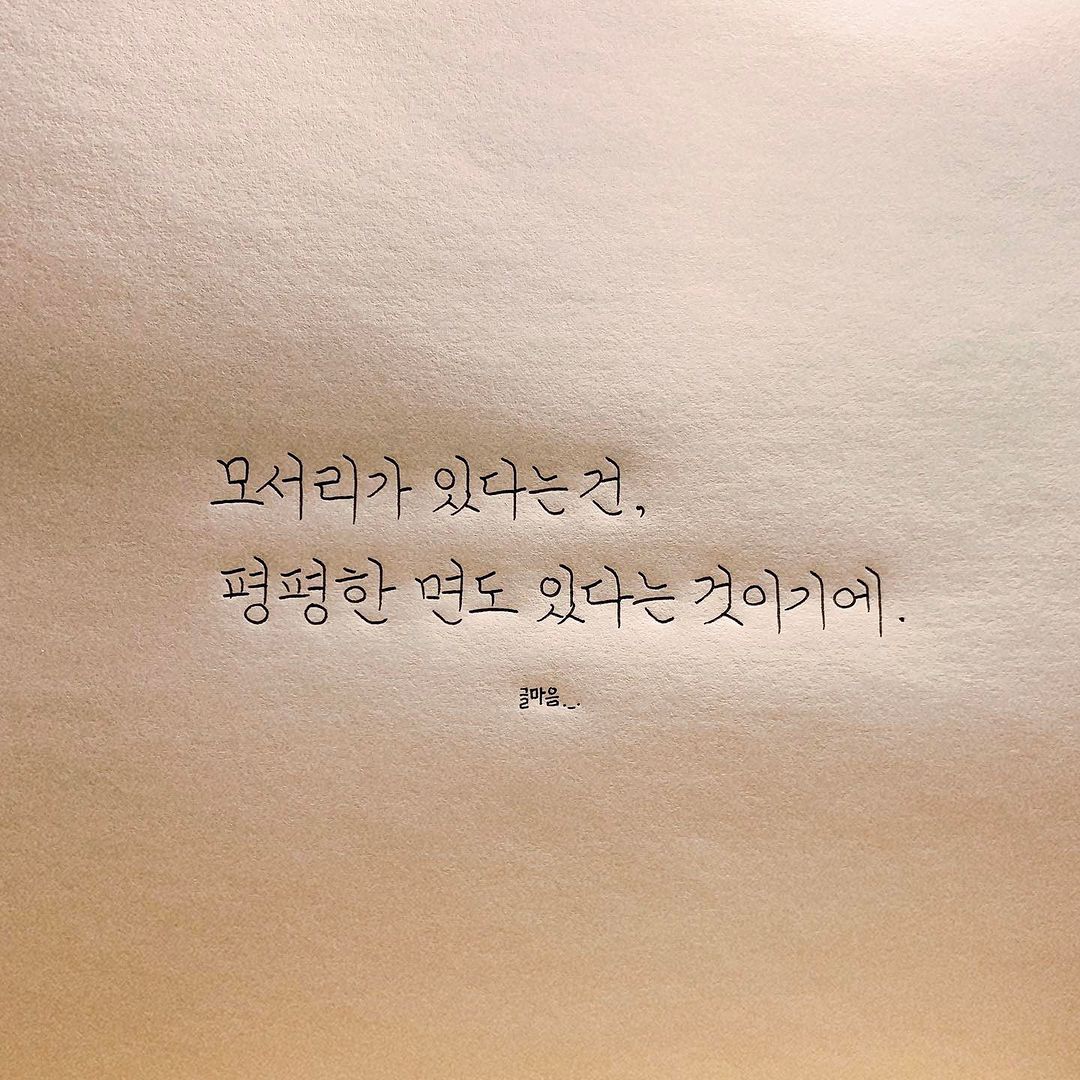 모서리가 있다는건,
평평한 면도 있다는것이기에.
글마음._.